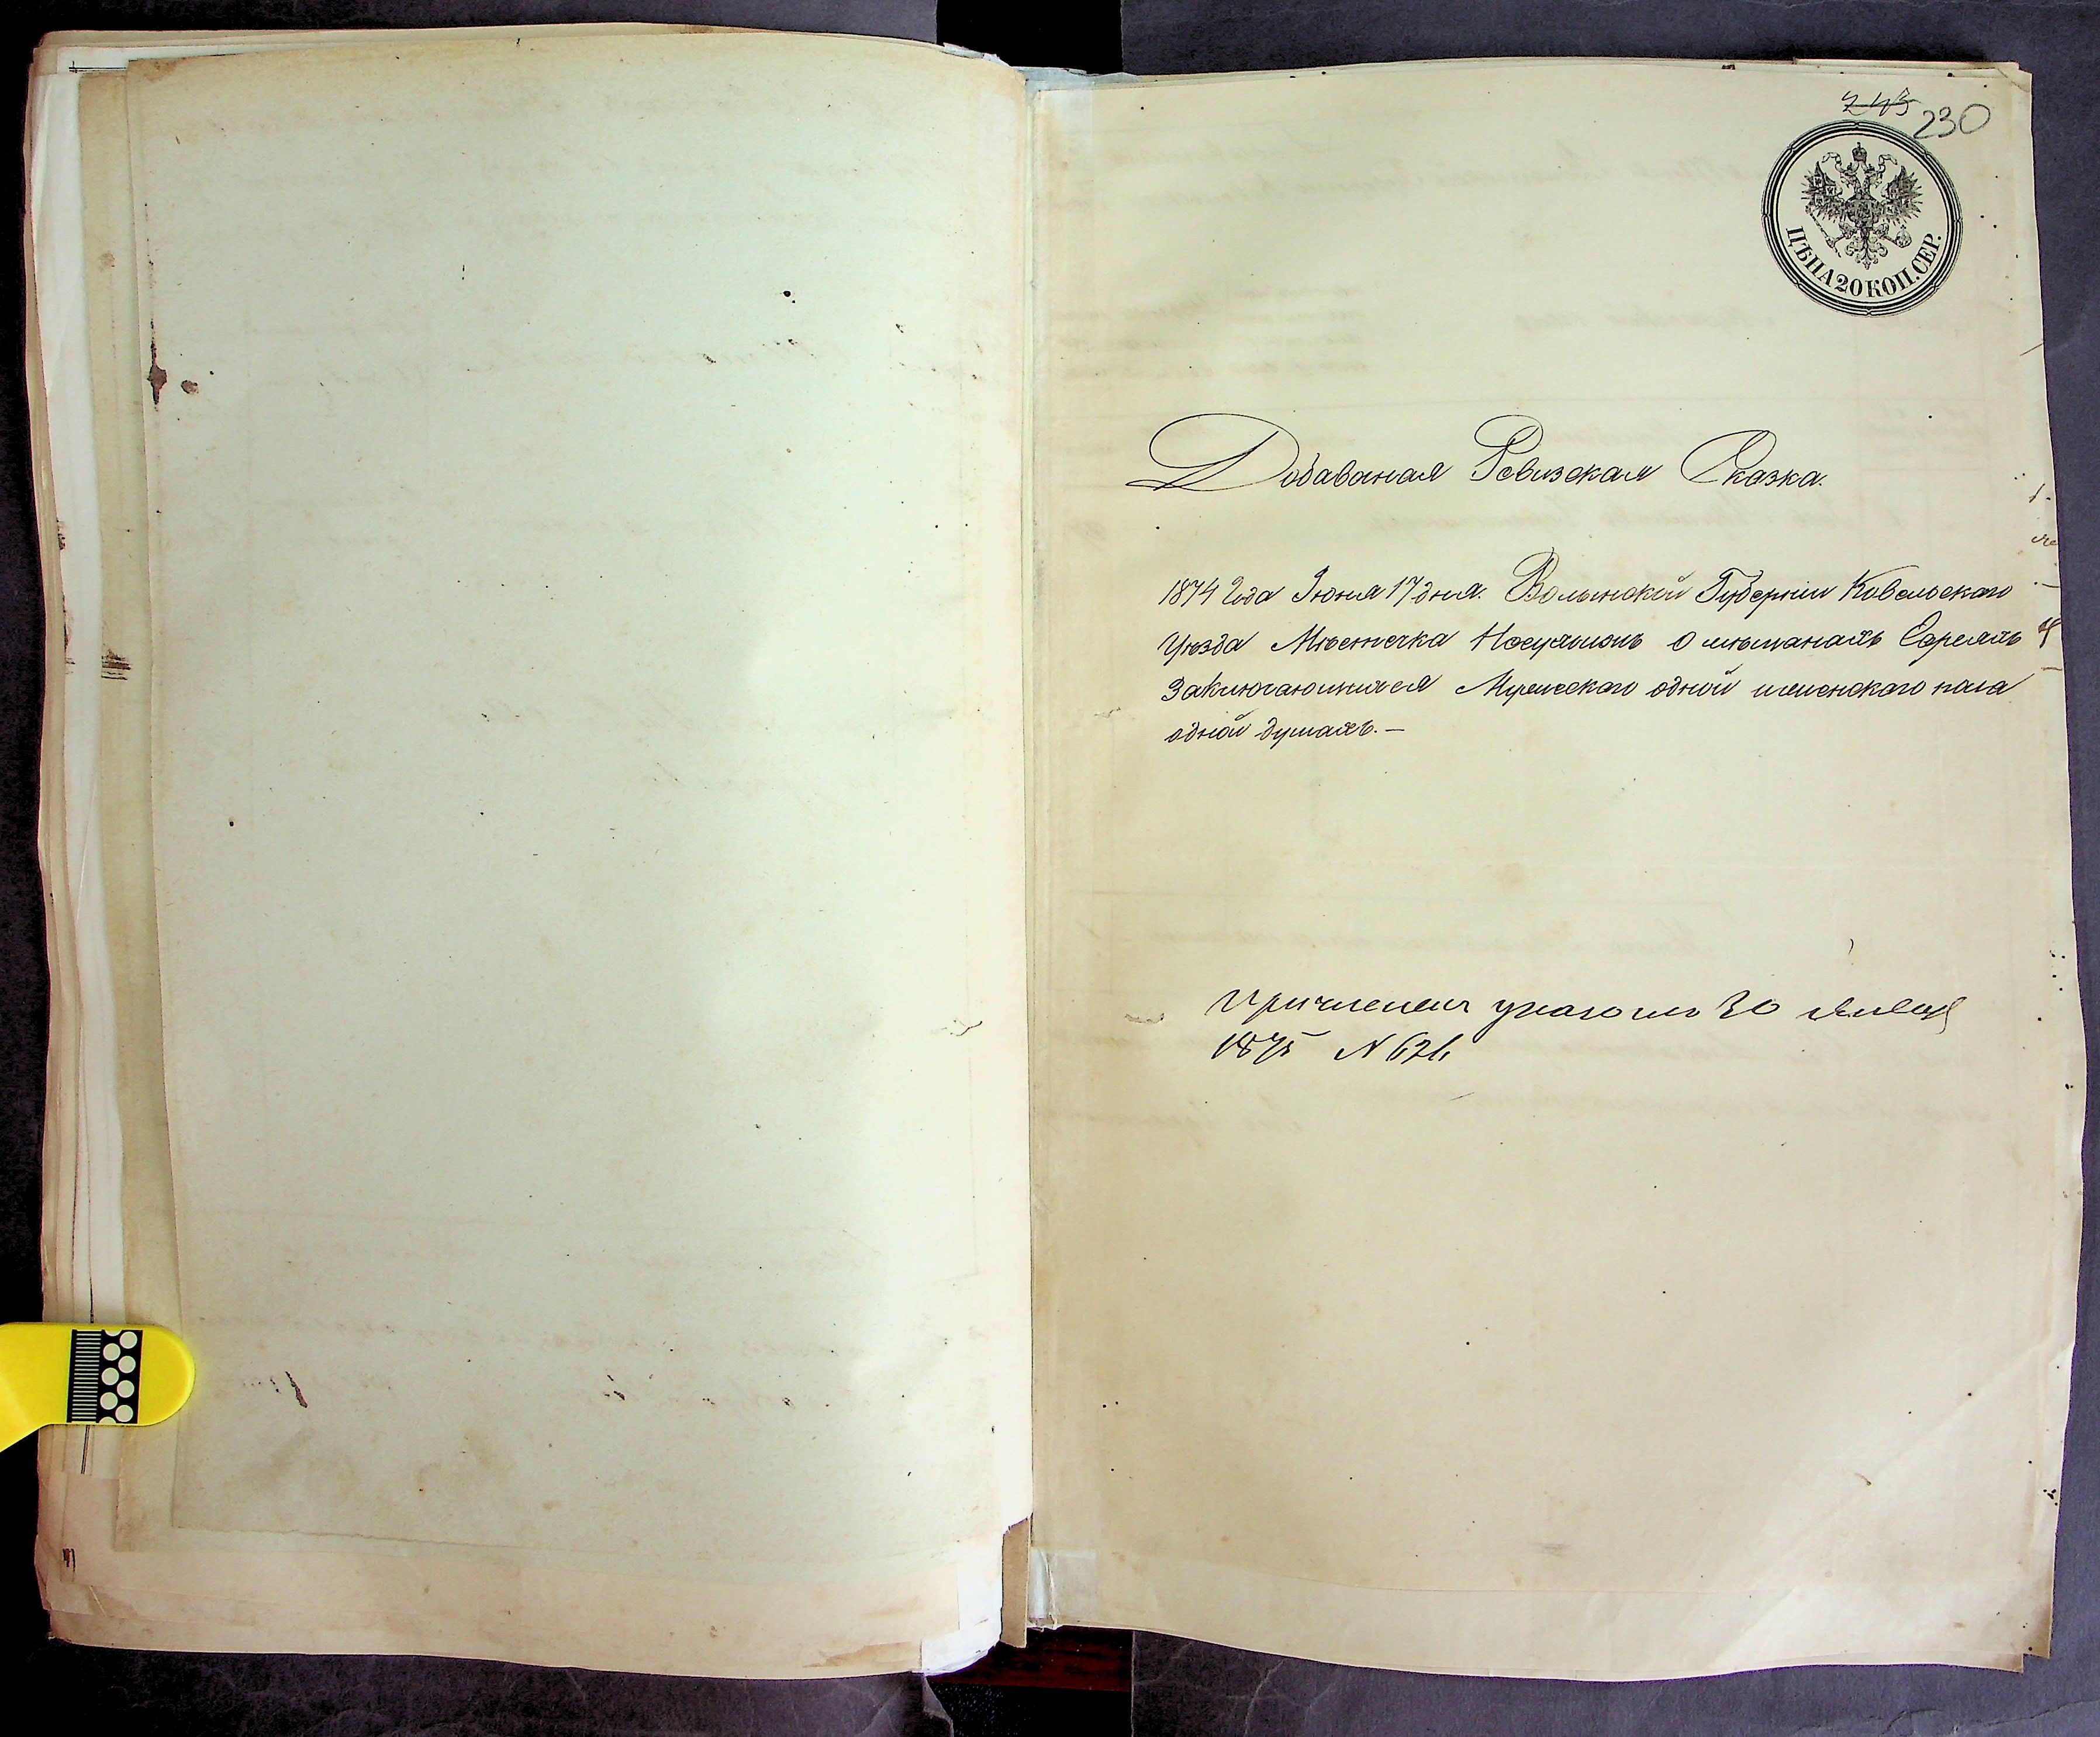 243 230
ЦѢНА 20 КОП. СЕР.
Добавачная Ревизская Сказка.
1874 Года Іюня 17 дня. Волынской Губерніи Ковельскаго
Уѣзда Мѣстечка о мѣщанахъ Евреяхъ
Заключающихся Мужескаго одной женскаго пола
одной душахъ. —
Причислены указомъ 30 Января
1875 N 621